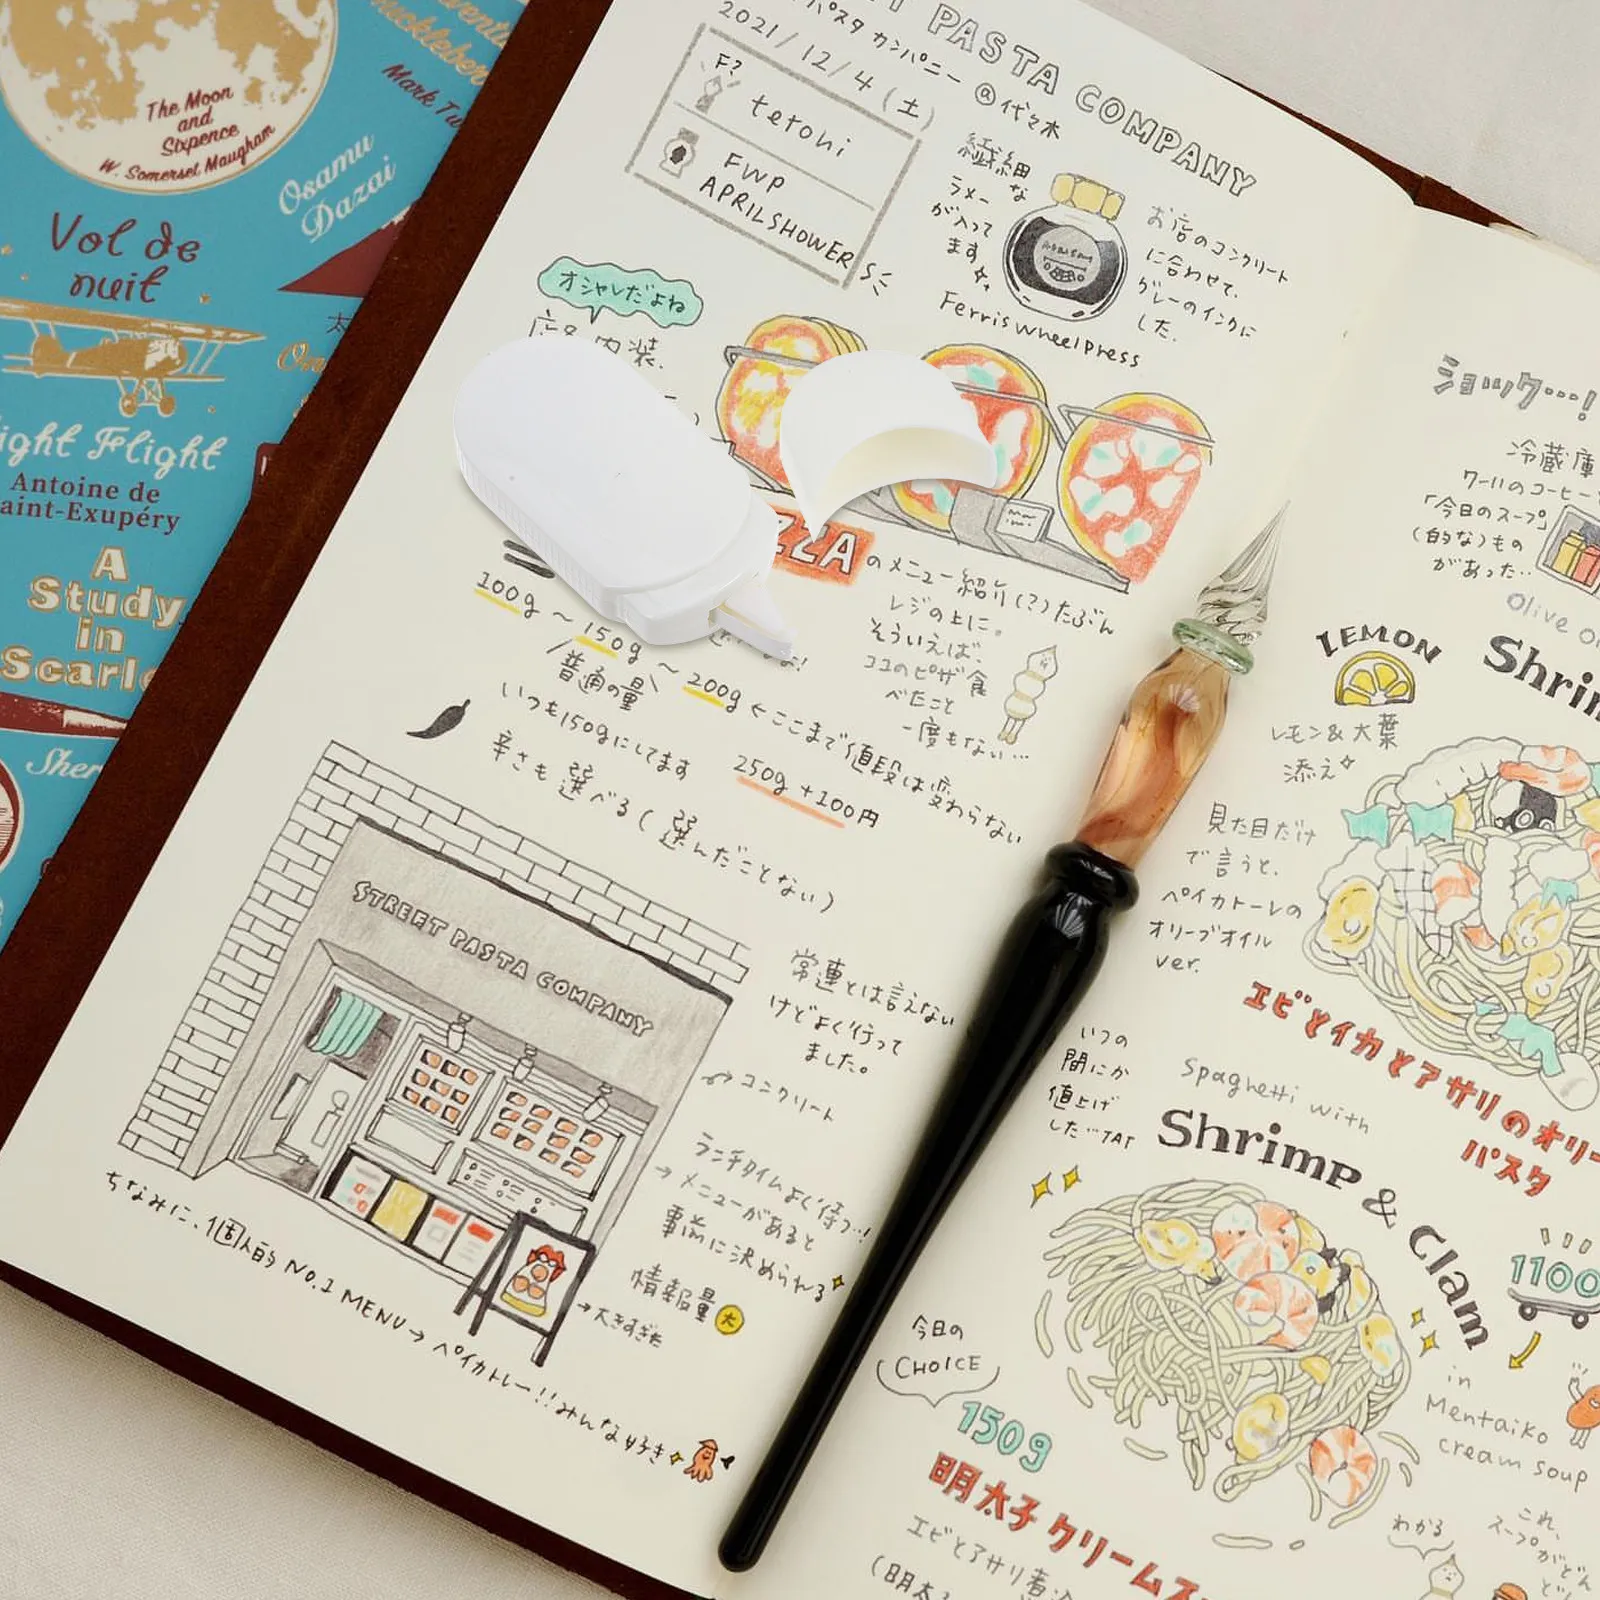 The Moon
and
Sixpence
W. Somerset Maugham
Osamu
Dazai
Vol de
nuit
Night Flight
Antoine de
Saint-Exupéry
A
Study
in
PASTA COMPANY
パスタ カンパニー @代々木
2021/12/4(土)
F?
tetohi
FWP
APRILSHOWERS
繊細
な
ラメー
が入って
ます
Ferris wheel press
お店のコンクリート
に合わせて、
グレーのインクに
した。
オシャレだよね
内装、
ZZA
のメニュー紹介(?)たぶん
レジの上に。
そういえば、
ココのピザ食
べたこと
一度もない…
100g ~ 150g ~ 200g ←ここまで値段は変わらない
普通の量
いつも150gにしてます
250g +100円
辛さも選べる(選んだことない)
STREET PASTA COMPANY
常連とは言えない
けどよく行って
ました。
コンクリート
ランチタイムよく待つ…!
→メニューがあると
事前に決められる
情報量大
→大きすぎた
ちなみに、個人的 NO.1 MENU→ ペイカトレー!!みんな好き
ショック…!
冷蔵庫
「今日のスープ」
(的な)もの
があった…
LEMON
レモン&大葉
添え
見た目だけ
で言うと、
ペイカトーレの
オリーブオイル
ver.
エビとイカとアサリのオリー
パスタ
いつの
間にか
値上げ
した…TAT
Spaghetti with
Shrimp & Clam
1100
in
Mentaiko
cream soup
今日の
CHOICE
150g
明太子クリームス
エビとアサリ
わかる
これ、
スープがどん